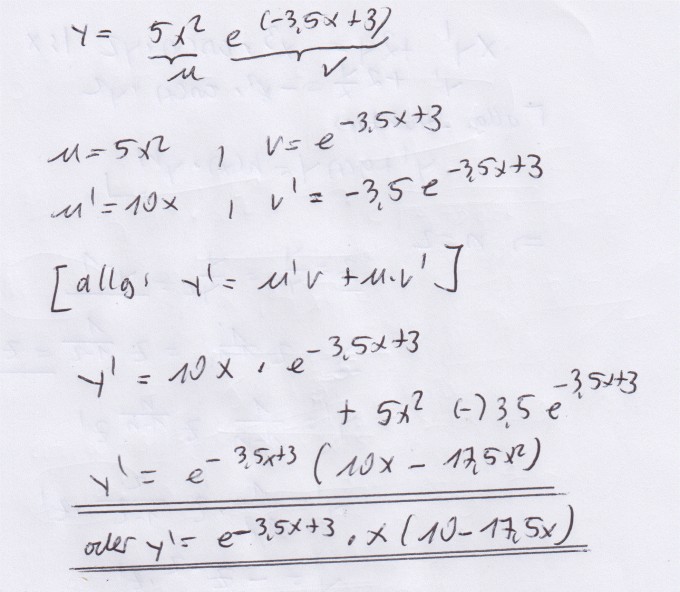 y = 5x² e^(-3,5x+3)
u v
u = 5x² , v = e^-3,5x+3
u' = 10x , v' = -3,5 e^-3,5x+3
[allg: y' = u'v + u·v']
y' = 10x · e^-3,5x+3
+ 5x² (-) 3,5 e^-3,5x+3
y' = e^-3,5x+3 (10x - 17,5x²)
oder y' = e^-3,5x+3 · x (10 - 17,5x)